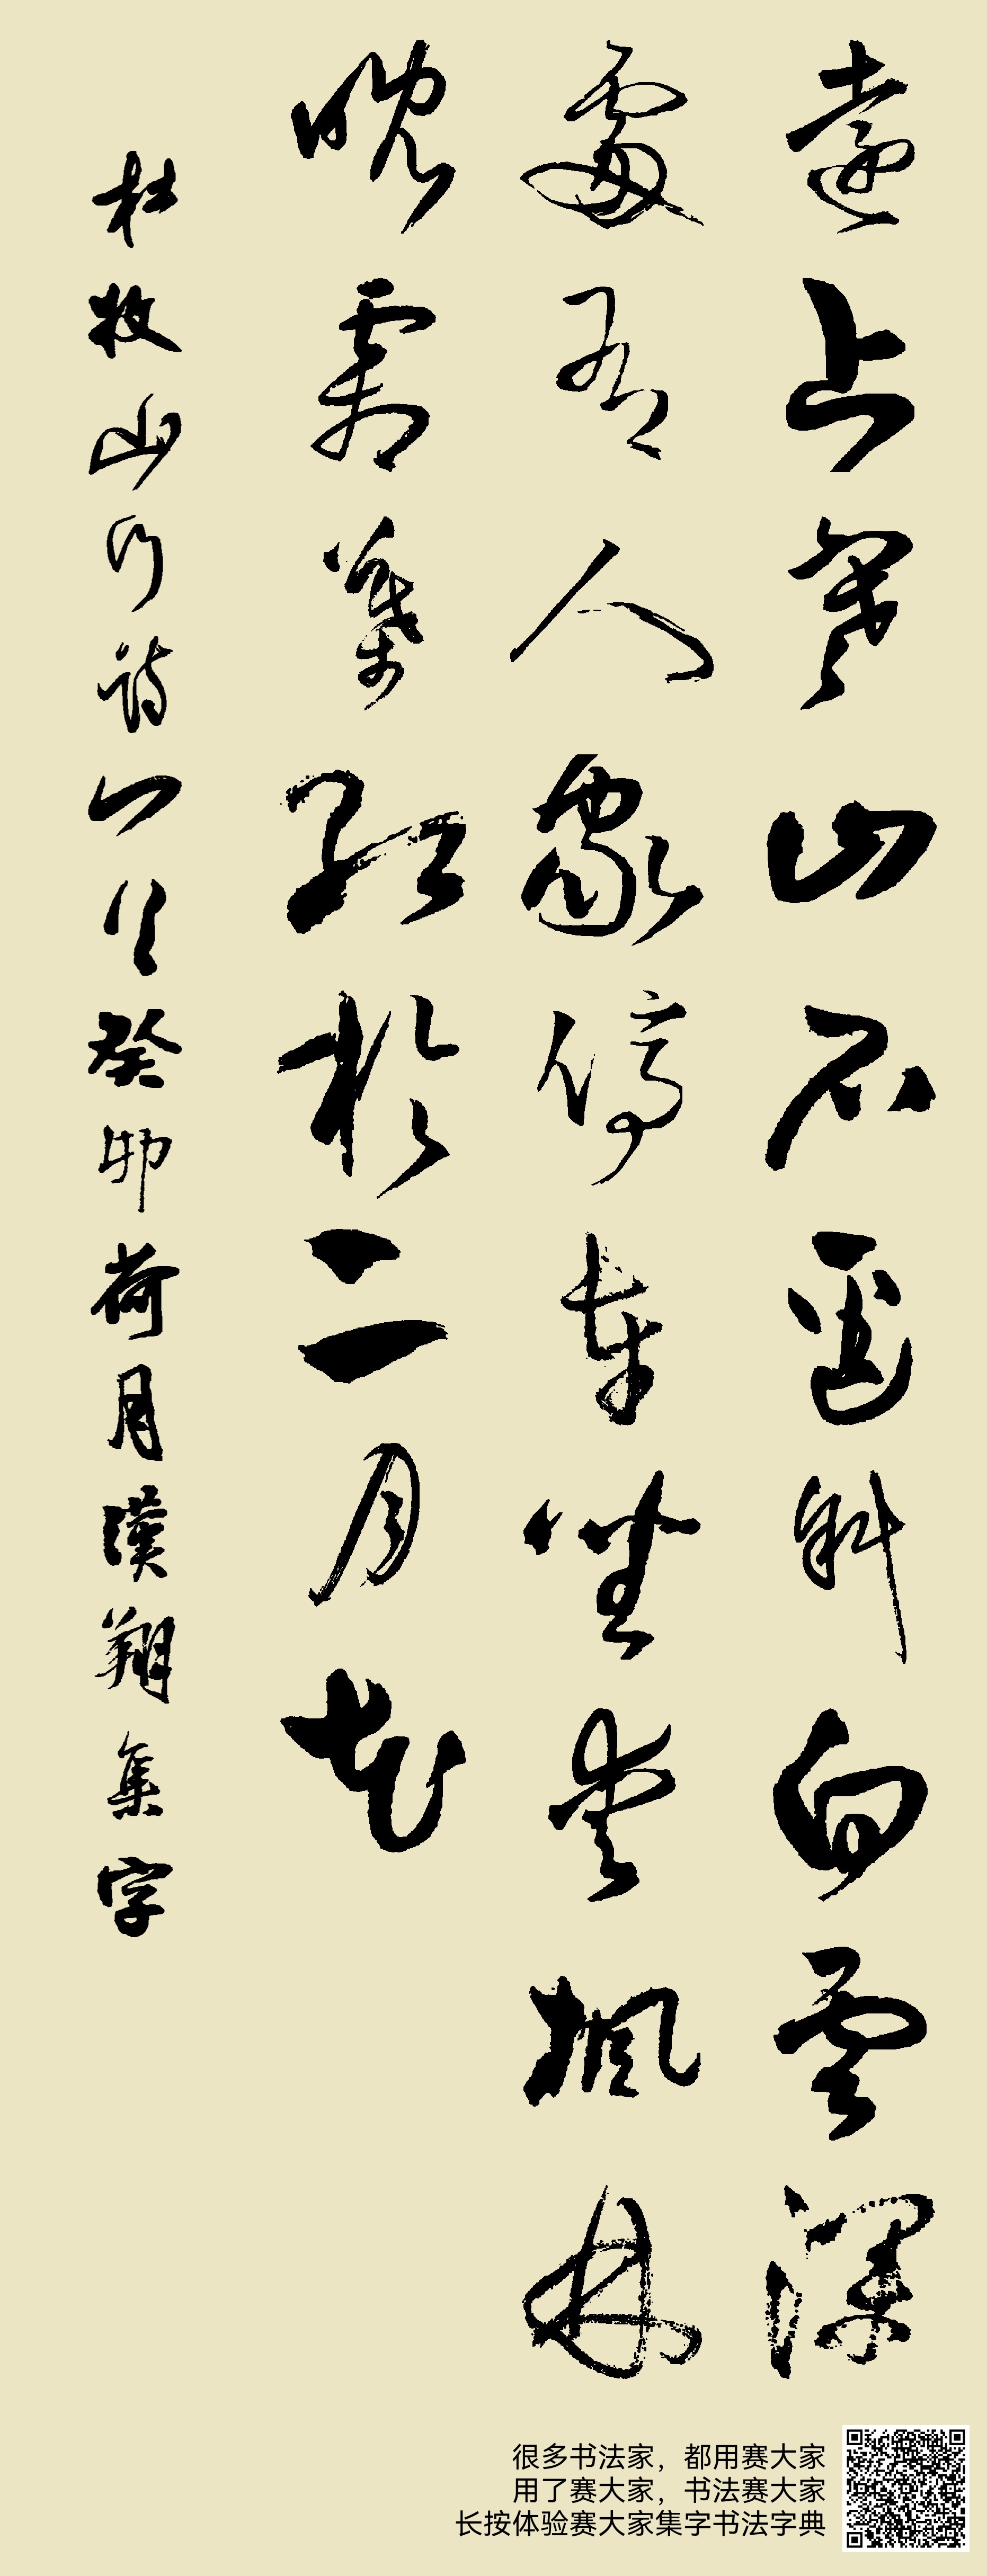 遠上寒山石徑斜白雲深
處有人家停車坐愛楓林
晚霜葉紅於二月花
杜牧山行詩一首癸卯荷月漢翔集字
很多书法家，都用赛大家
用了赛大家，书法赛大家
长按体验赛大家集字书法字典